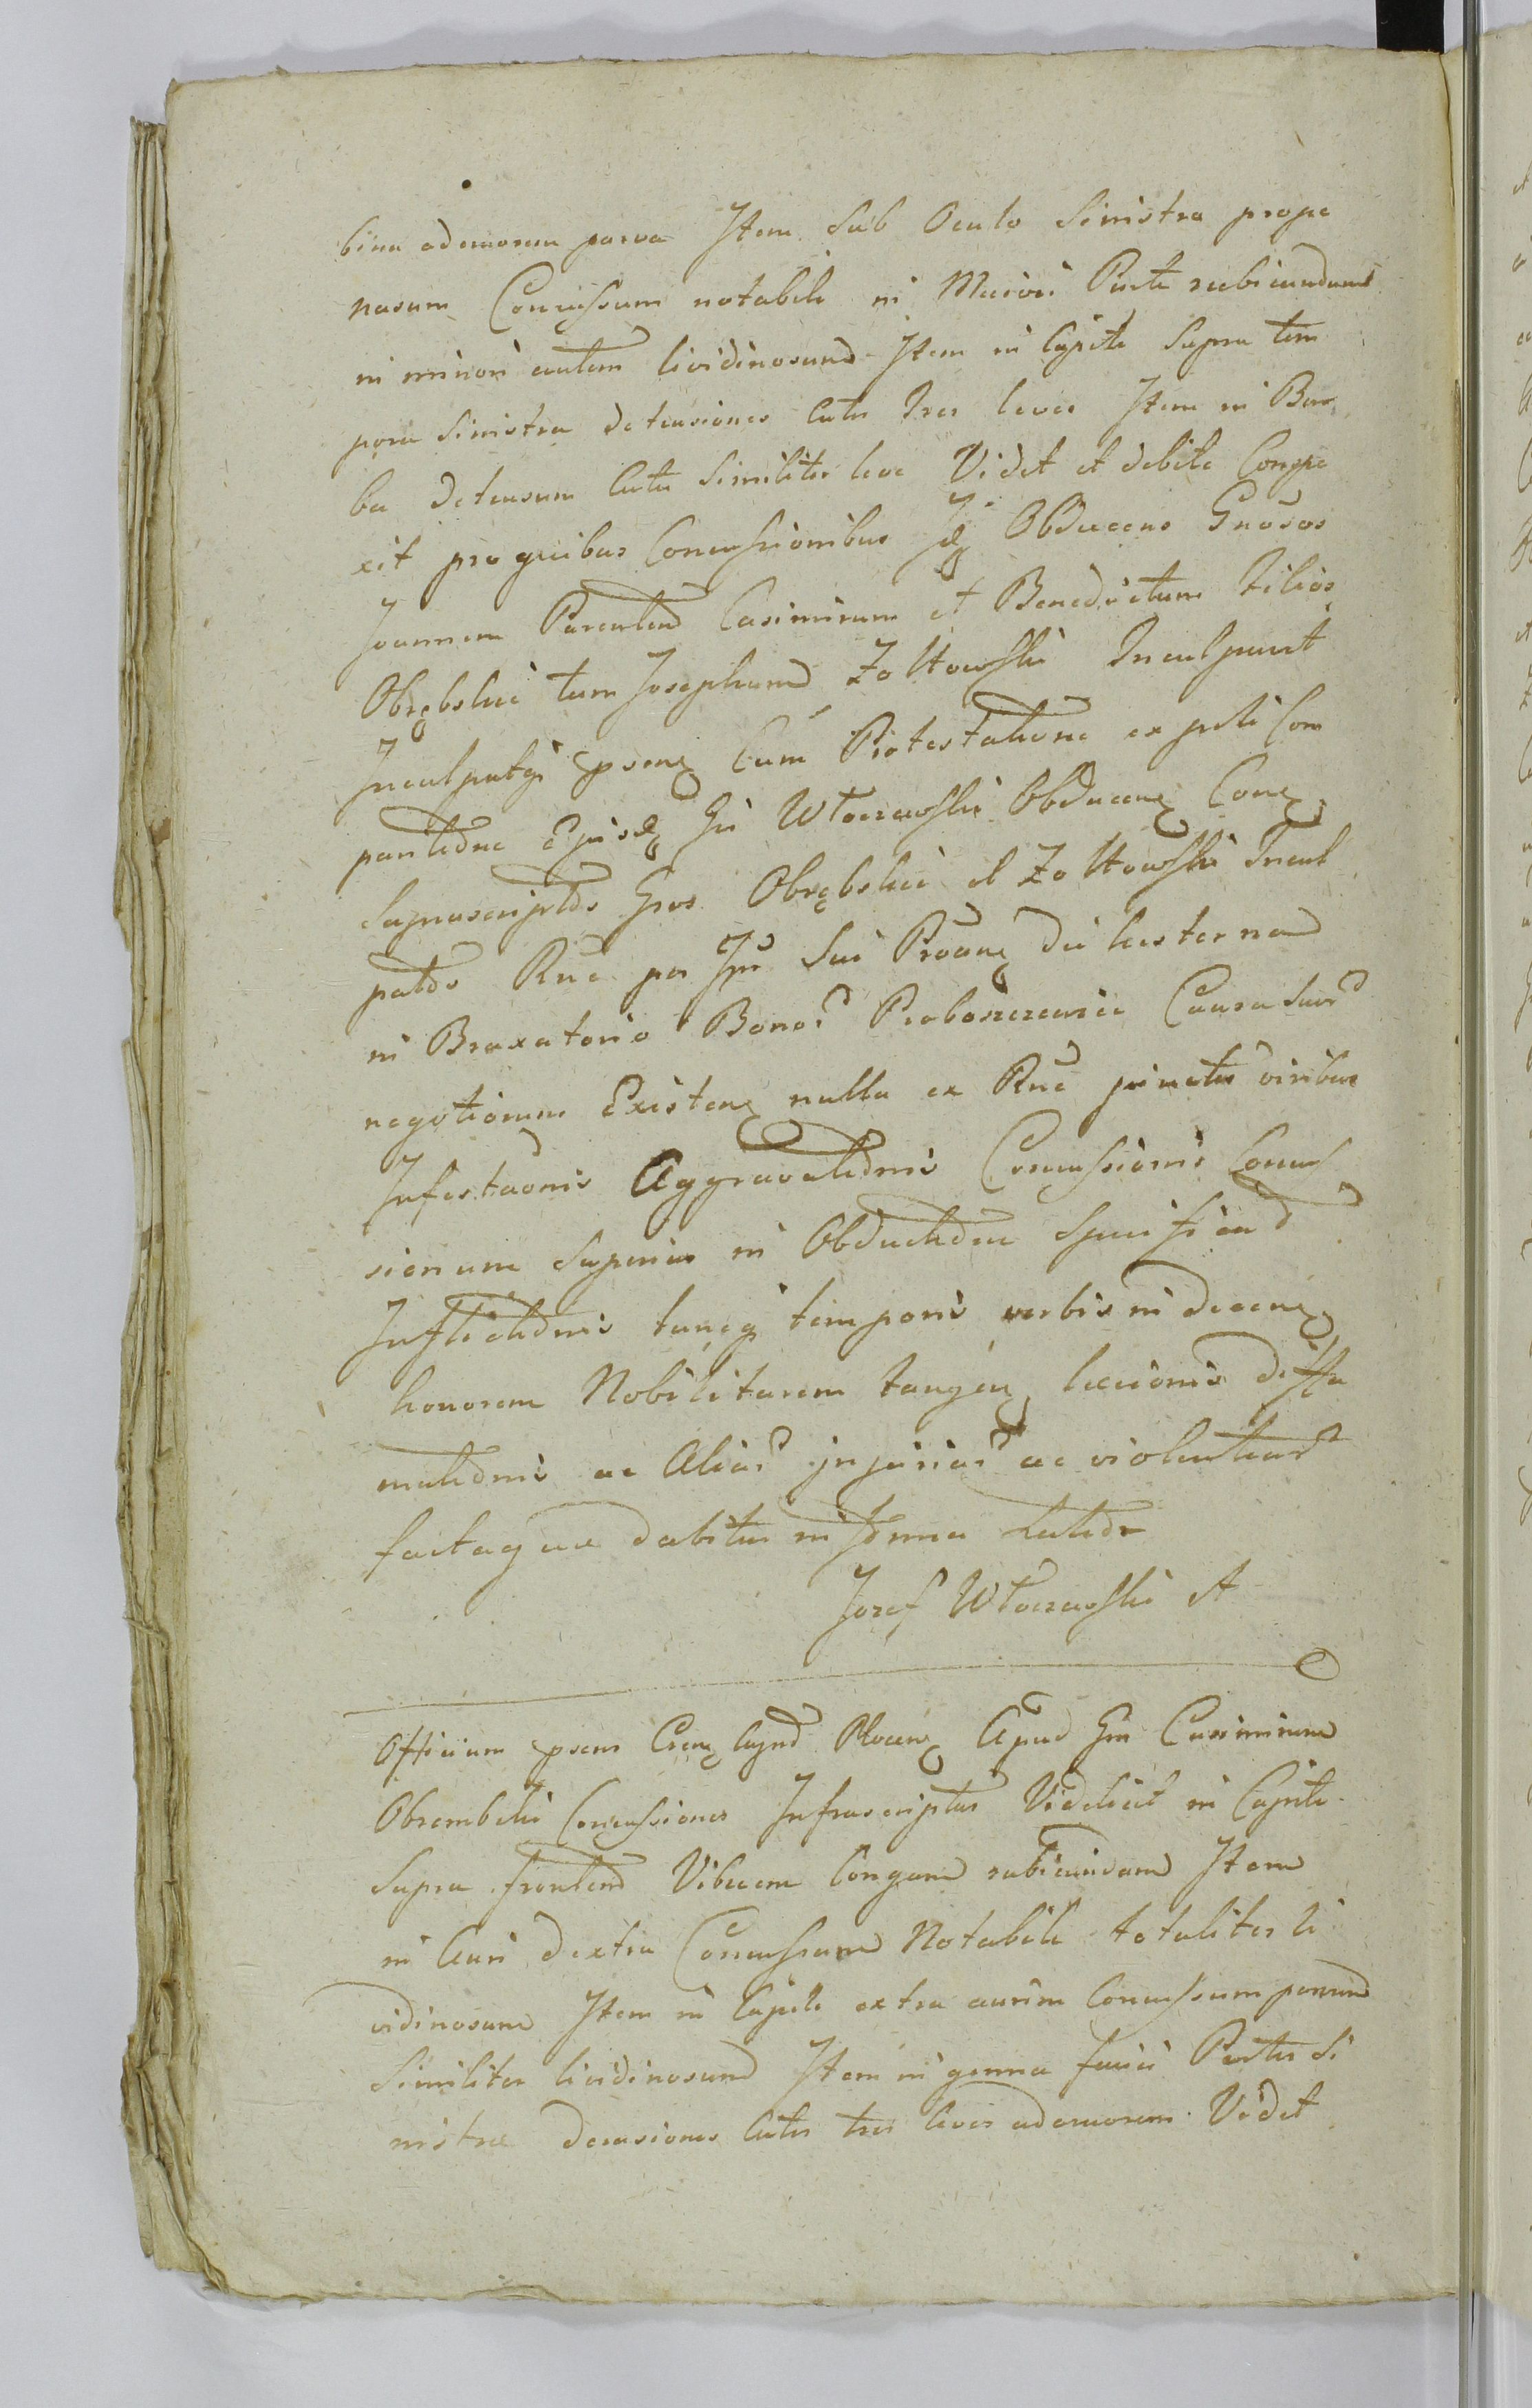 bina ad emorem parva Item Sub Oculo Sinistro prope
nasum Concussum notabile in Maiori Parte rubicundum
in minori autem lividinosum Item in Capite Supra tem
pora Sinistra detensiones Cutis tres leves Item in Bar
ba detensum Cutis Similiter leve Vidit et debite Conspe
xit pro quibus Concussionibus Obducens Gnosos
Joannem Parentem Casimirum et Benedictum Filios
Obrębskie tum Josephum Zołtowski Inculpavit
Inculpatq psens Cum Protestatione ex parte Com
paritione Ejusd Gni Wtoczewski Obducen Con
Suprascriptos Gnos Obrębskie et Zołtowski Incul
patos Rne per Ipm Sui Proane die hesterna
in Braxatorio Bonor Proboszczewice Causa Suor
negotiorum Existen nulla ex Rne pinctis viribus
Infestaonis Aggravationis Concussionis Concus
sionum Superius in Obductione Specificand
Inflictionis tuncq temporis verbis indecen
honorem Nobilitarem tangen lexionis diffa
mationis ac Aliar injuriar ac violentiar
factaque dabitur in Forma Latior
Jozef Wtoczewski A
Officium psens Cren Capnd Plocen Apud Gm Casimirum
Obrembski Concussiones Infrascriptas Videlicet in Capite
Supra frontem Vibicem longam rubicundam Item
in Auri dextra Concussum Notabile totaliter li
vidinosum Item in Capite extra aurim Concussum parvum
Similiter lividinosum Item in genna faciei Partis Si
nistrae decusiones Cutis tres leves ademorem Vidit